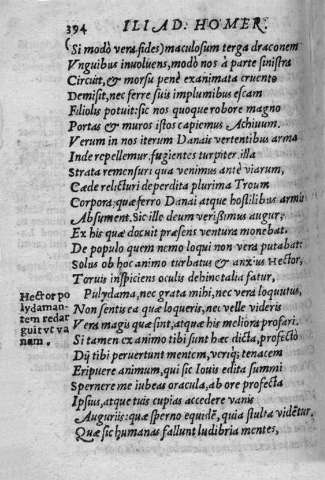 394 ILIAD. HOMER.
(Si modò vera fides) maculosum terga draconem
Vnguibus inuoluens, modò nos à parte sinistra
Circuit, & morsu penè exanimata cruento
Demisit, nec ferre suis implumibus escam
Filiolis potuit: sic nos quoque robore magno
Portas & muros istos capiemus Achiuum.
Verum in nos iterum Danais vertentibus arma
Inde repellemur. fugientes turpiter illa
Strata remensuri qua venimus antè viarum,
Cæde relicturi deperdita plurima Troum
Corpora, quæ ferro Danai atque hostilibus armis
Absument. Sic ille deum verißimus augur;
Ex his quæ docuit præsens ventura monebat.
De populo quem nemo loqui non vera putabat:
Solus ob hoc animo turbatus & anxius Hector,
Toruis inspiciens oculis dehinc talia fatur,
Pulydama, nec grata mihi, nec vera loquutus,
Non sentis ea quæ loqueris, nec velle videris
Vera magis quæ sint, atque his meliora profari.
Si tamen ex animo tibi sunt hæc dicta, profectò
Dij tibi peruertunt mentem, verìq; tenacem
Eripuere animum, qui sic Iouis edita summi
Spernere me iubeas oracula, ab ore profecta
Ipsius, atque tuis cupias accedere vanis
Augurijs: quæ sperno equidẽ, quia stulta vidẽtur,
Quæ sic humanas fallunt ludibria mentes,
Hector po
lydaman-
tem redar
guit vt va
num.